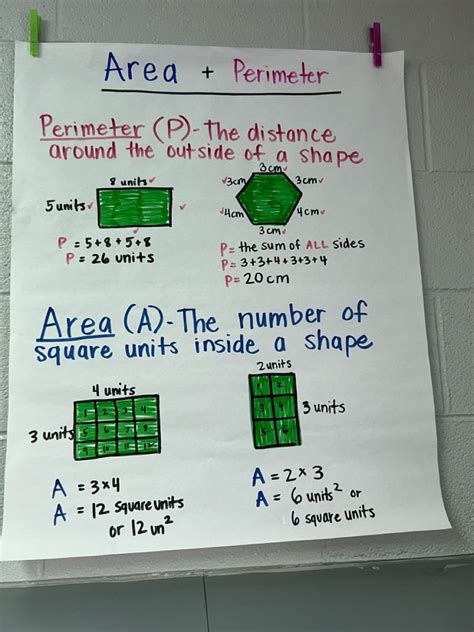 Area + Perimeter
Perimeter (P)-The distance
around the outside of a shape
8 units✓
5units✓
✓
✓
P = 5+8+5+8
P = 26 units
3cm✓
✓3cm
3cm✓
✓4cm
4cm✓
3cm✓
P= the sum of ALL sides
P= 3+3+4+3+3+4
P= 20cm
Area (A)-The number of
square units inside a shape
4 units
3 units
1 2 3 4
5 6 7 8
9 10 11 12
A = 3×4
A = 12 square units
or 12 un²
2units
3 units
1 2
3 4
5 6
A = 2×3
A = 6 units² or
6 square units